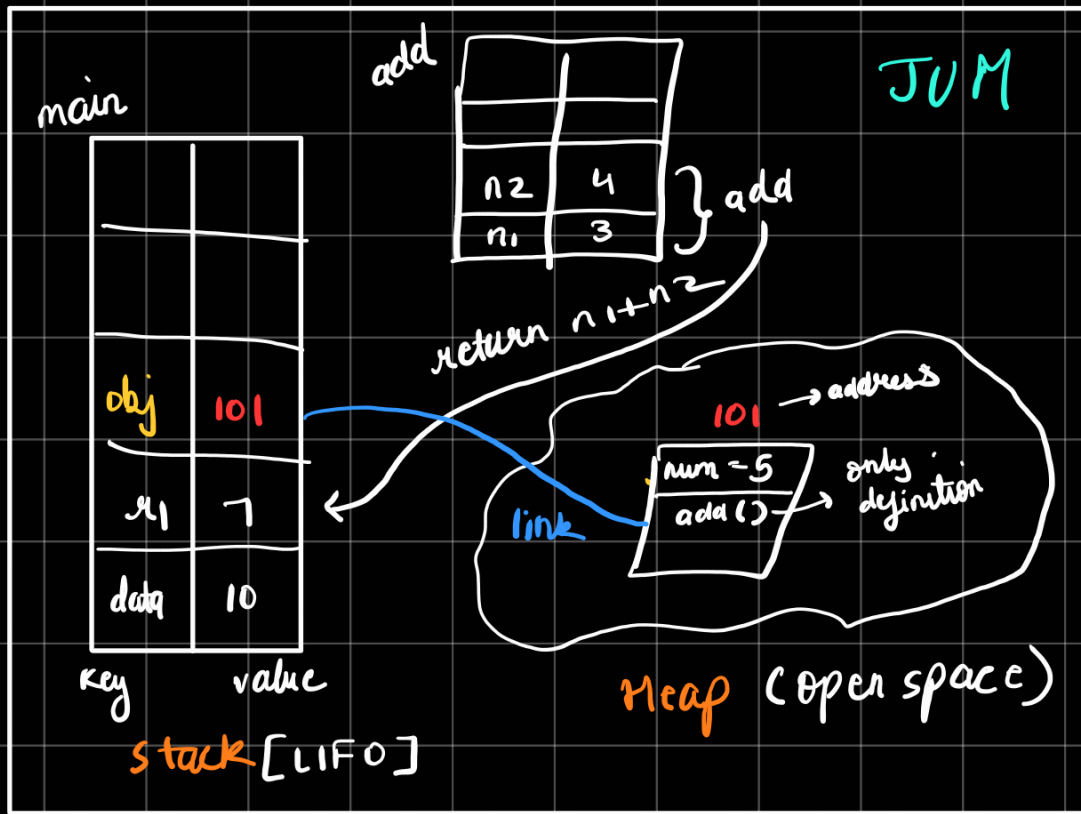 JVM
add
n2 4
n1 3
} add
return n1+n2
main
obj 101
r1 7
data 10
key value
stack [LIFO]
101 → address
num - 5
add() → only definition
link
Heap (open space)